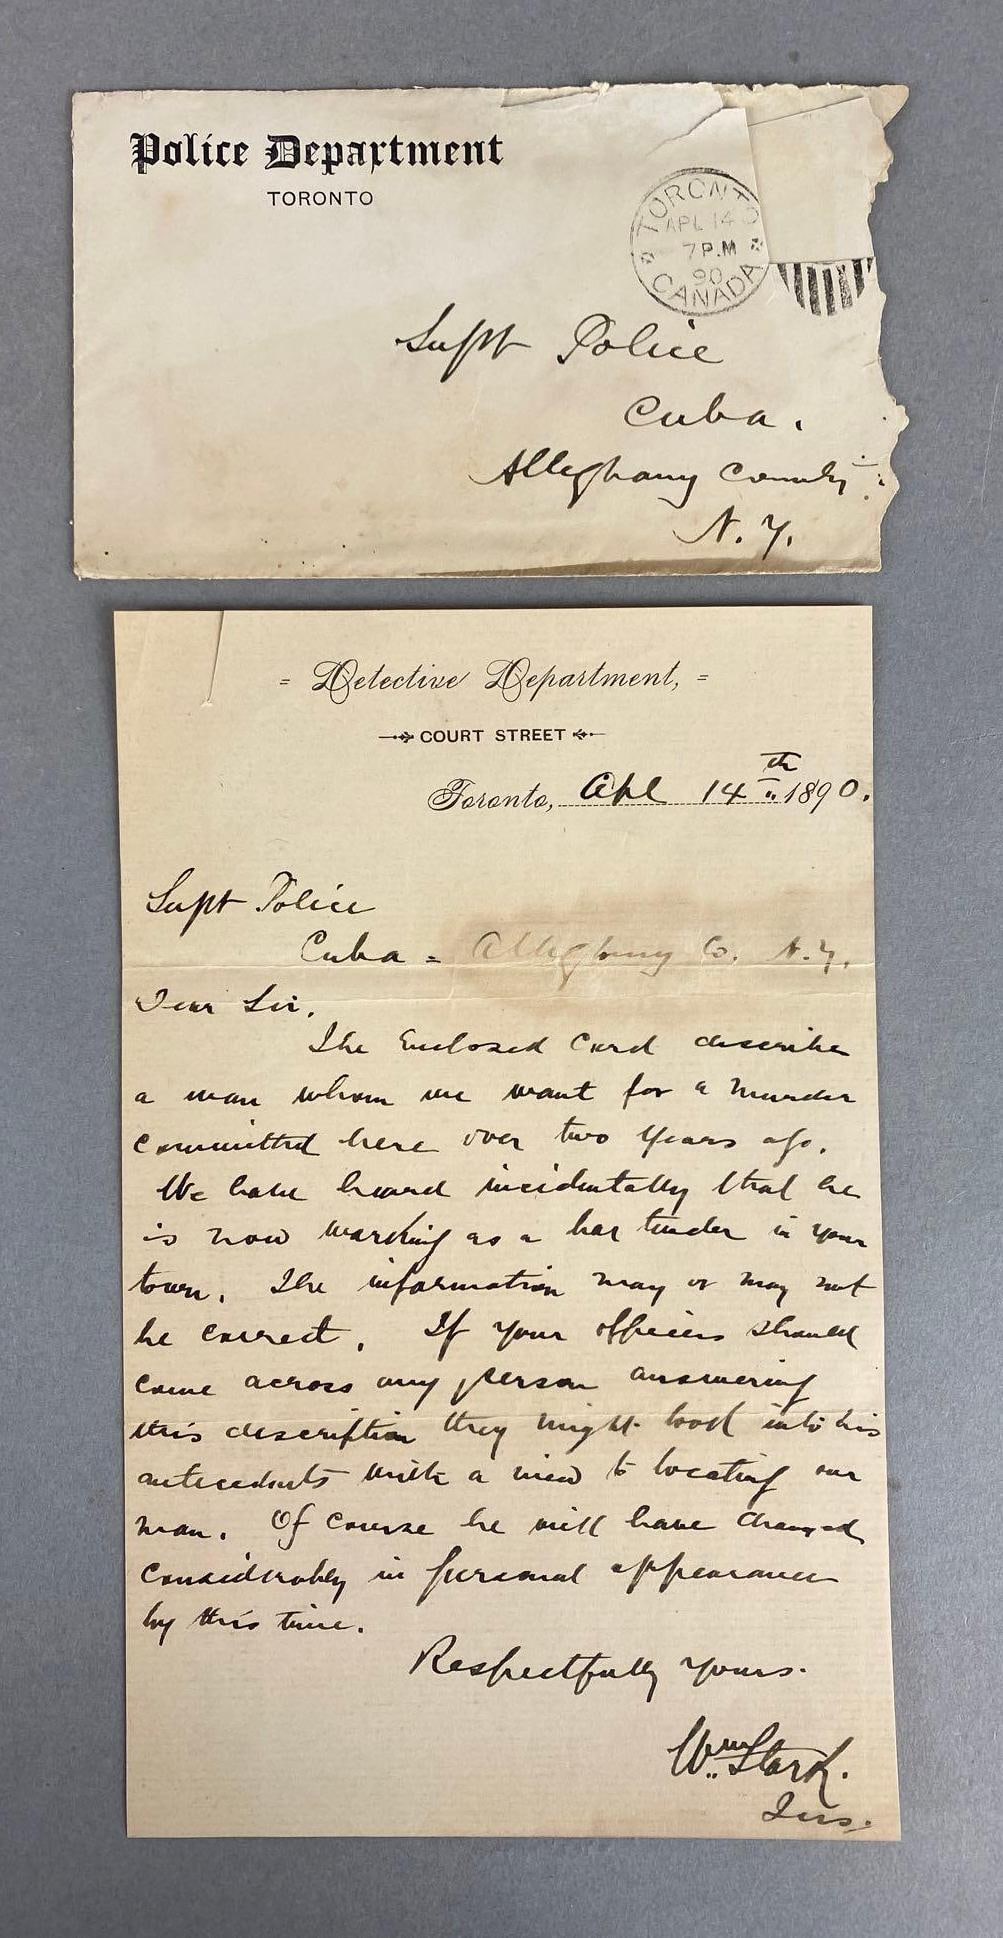 Police Department
TORONTO
TORONTO
APL 14
7 P.M
90
CANADA
Supt Police
Cuba.
Alleghany County
N. Y.
= Detective Department, =
COURT STREET
Toronto, Apl 14th 1890.
Supt Police
Cuba = Alleghany Co. N.Y.
Dear Sir.
The Enclosed Card describes
a man whom we want for a Murder
committed here over two years ago.
We have heard incidentally that he
is now working as a bar tender in your
town. The information may or may not
be correct. If your officers should
come across any person answering
this description they might look into his
antecedents with a view to locating our
man. Of course he will have changed
considerably in personal appearance
by this time.
Respectfully Yours.
Wm Stark.
Ins.